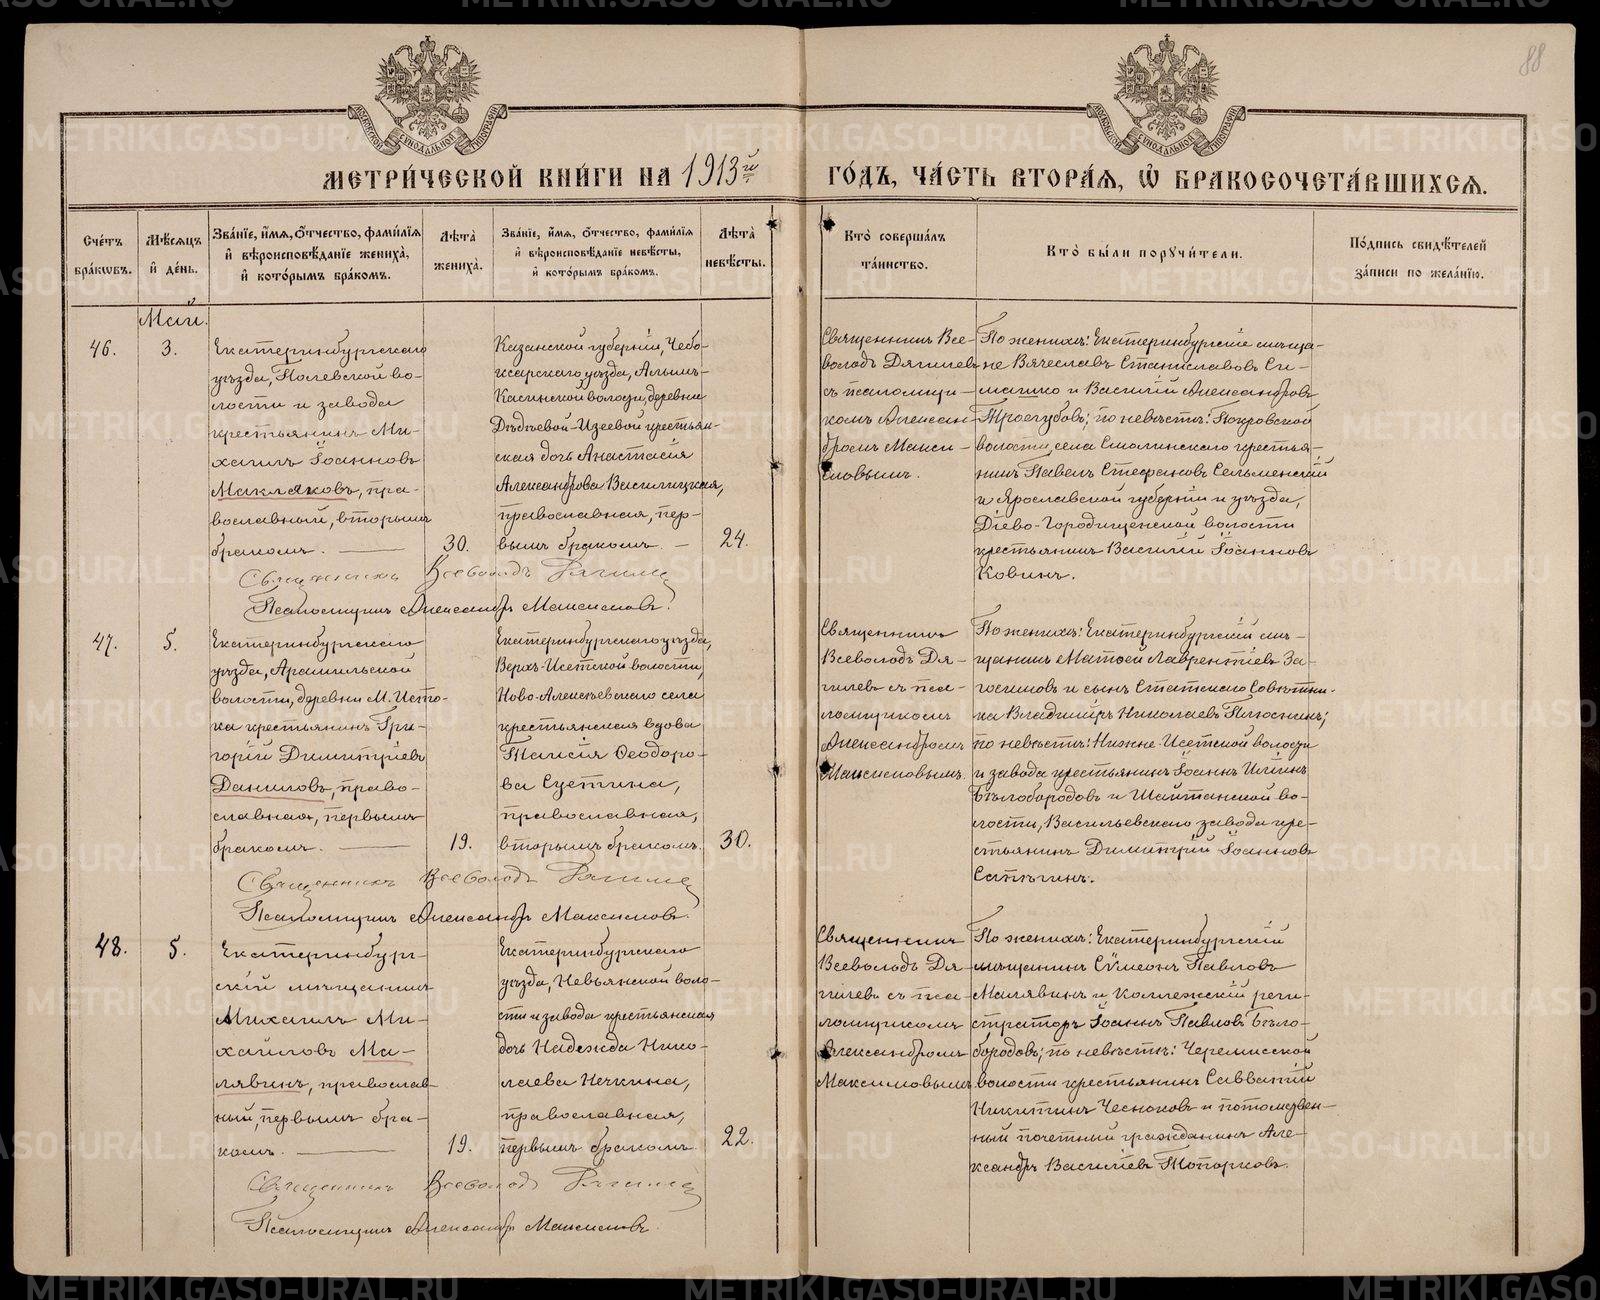 88
МЕТРИ́ЧЕСКОЙ КНИ́ГИ НА 1913й ГО́ДЪ, ЧА́СТЬ ВТОРА́Я, Ѡ БРАКОСОЧЕТА́ВШИХСЯ.
Сче́тъ бра́кѡвъ.
Мѣ́сяцъ и҆ де́нь.
Зва́нїе, и҆́мя, ѻ҆́тчество, фами́лїя
и҆ вѣроисповѣ́данїе жениха̀,
и҆ кото́рымъ бра́комъ.
Лѣ́та жениха̀.
Зва́нїе, и҆́мя, ѻ҆́тчество, фами́лїя
и҆ вѣроисповѣ́данїе невѣ́сты,
и҆ кото́рымъ бра́комъ.
Лѣ́та невѣ́сты.
Кто̀ соверша́лъ
та́инство.
Кто̀ бы́ли порꙋчи́тели.
По́дпись свидѣ́телей
за́писи по жела́нїю.
Май.
46.
3.
Екатеринбургскаго
уѣзда, Полевской во-
лости и завода
крестьянинъ Ми-
хаилъ Іоанновъ
Макляковъ, пра-
вославный, вторымъ
бракомъ.
30.
Казанской губерніи, Чебо-
ксарскаго уѣзда, Алымъ-
Касинской волости, деревни
Дѣдѣевой-Изеевой крестьян-
ская дочь Анастасія
Александрова Василицкая,
православная, пер-
вымъ бракомъ.
24.
Священникъ Все-
володъ Дягилев
съ псаломщи-
комъ Алексан-
дромъ Макси-
мовымъ.
По женихѣ: Екатеринбургскіе мѣща-
не Вячеславъ Станиславовъ Си-
машко и Василій Александровъ
Троегубовъ; по невѣстѣ: Покровской
волости, села Смолинскаго крестья-
нинъ Павелъ Стефановъ Сельменскій
и Ярославской губерніи и уѣзда,
Діево-Городищенской волости
крестьянинъ Василій Іоанновъ
Ковинъ.
Священникъ Всеволодъ Дягилев
Псаломщикъ Александръ Максимовъ.
47.
5.
Екатеринбургскаго
уѣзда, Арамильской
волости, деревни М. Исто-
ка крестьянинъ Гри-
горій Димитріевъ
Даниловъ, право-
славный, первымъ
бракомъ.
19.
Екатеринбургскаго уѣзда,
Верхъ-Исетской волости,
Ново-Алексѣевскаго села
крестьянская вдова
Таисія Ѳеодоро-
ва Суетина,
православная,
вторымъ бракомъ.
30.
Священникъ
Всеволодъ Дя-
гилевъ съ пса-
ломщикомъ
Александромъ
Максимовымъ.
По женихѣ: Екатеринбургскій мѣ-
щанинъ Матѳей Лаврентіевъ За-
госкиновъ и сынъ Статскаго Совѣтни-
ка Владиміръ Николаевъ Плюснинъ;
по невѣстѣ: Нижне-Исетской волости
и завода крестьянинъ Іоаннъ Ильинъ
Бѣлобородовъ и Шайтанской во-
лости, Васильевскаго завода кре-
стьянинъ Димитрій Іоанновъ
Сапѣгинъ.
Священникъ Всеволодъ Дягилев
Псаломщикъ Александръ Максимовъ.
48.
5.
Екатеринбург-
скій мѣщанинъ
Михаилъ Ми-
хайловъ Ма-
лявинъ, православ-
ный, первымъ бра-
комъ.
19.
Екатеринбургскаго
уѣзда, Невьянской воло-
сти и завода крестьянская
дочь Надежда Нико-
лаева Нечкина,
православная,
первымъ бракомъ.
22.
Священникъ
Всеволодъ Дя-
гилевъ съ пса-
ломщикомъ
Александромъ
Максимовымъ
По женихѣ: Екатеринбургскій
мѣщанинъ Сѵмеонъ Павловъ
Малявинъ и Коллежскій реги-
страторъ Іоаннъ Павловъ Бѣло-
бородовъ; по невѣстѣ: Черемисской
волости крестьянинъ Савватій
Никитинъ Чесноковъ и потомствен-
ный почетный гражданинъ Але-
ксандръ Василіевъ Топорковъ.
Священникъ Всеволодъ Дягилев
Псаломщикъ Александръ Максимовъ.
METRIKI.GASO-URAL.RU